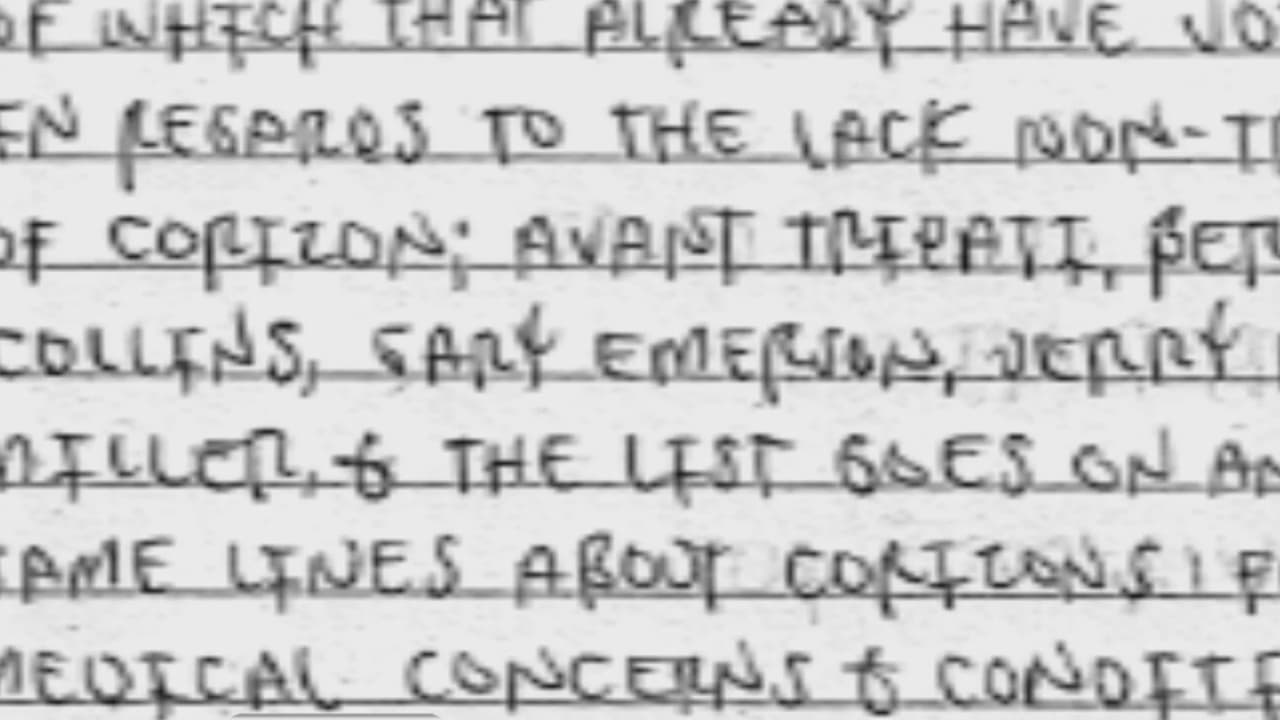 OF WHICH THAT ALREADY HAVE
IN REGARDS TO THE LACK NON-
OF CORIZON; AVANT TRIPATI,
COLLINS, GARY EMERSON, JERRY
MILLER, & THE LIST GOES ON
SAME LINES ABOUT CORIZONS'
MEDICAL CONCERNS &